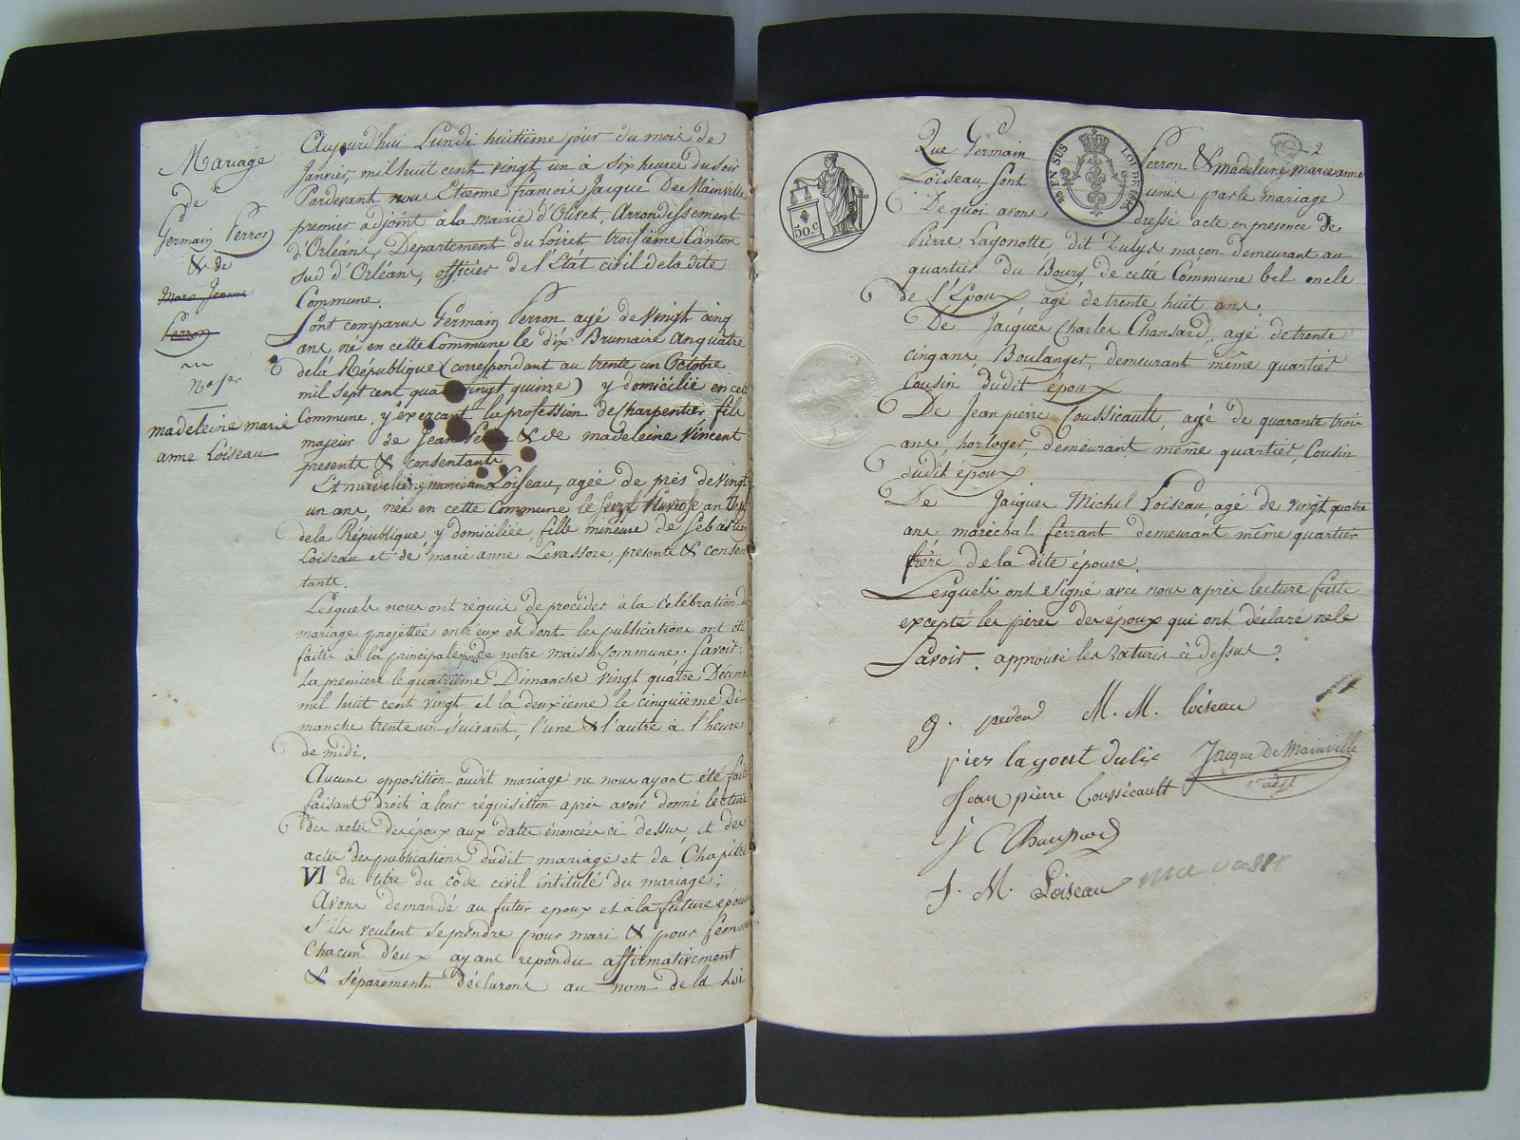 Mariage
de
Germain Perron
& de
Marie Jeanne
Perron
madeleine marie
anne Loiseau
Aujourd'hui Lundi huitième jour du mois de
Janvier, mil huit cent vingt un à six heures du soir
Pardevant nous Etienne françois Jacque De Mainville
premier adjoint à la mairie d'Olivet, Arrondissement
d'Orléans, Département du Loiret troisième Canton
sud d'Orléans, officier de l'Etat civil de la dite
Commune.
Sont comparus Germain Perron agé de vingt cinq
ans, né en cette Commune le dix Brumaire an quatre
de la République (correspondant au trente un Octobre
mil sept cent quatre vingt quinze) y domicilié en cette
Commune, y exerçant la profession de Charpentier fils
majeur de Jean Perron & de madeleine Vincent
presents & consentants
Et madeleine marie anne Loiseau, agée de près de vingt
un ans, née en cette Commune le Nivose an
de la République, y domiciliée, fille mineure de Sébastien
Loiseau et de marie anne Levassore, presents & consen
tante.
Lesquels nous ont réquis de procéder à la Célébration du
mariage projettée entr'eux et dont les publications ont été
faites à la principale de notre maison commune. Savoir:
La première le quatrième Dimanche vingt quatre Décembre
mil huit cent vingt et la deuxième le cinquième Di-
manche trente un suivant, l'une & l'autre à l'heure
de midi.
Aucune opposition audit mariage ne nous ayant été faite
faisant droit à leur réquisition après avoir donné lecture
des actes des époux aux dates énoncées ci dessus, et des
actes des publications dudit mariage et du Chapitre
VI du titre du code civil intitulé du mariage;
Avons demandé au futur epoux et à la future épouse
s'ils veulent se prendre pour mari & pour femme
Chacun d'eux ayant repondu affirmativement
& séparement déclarons au nom de la loi
2
Que Germain Perron & madeleine marie anne
Loiseau sont unis par le mariage
De quoi avons dressé acte en presence de
Pierre Lagonotte, dit Dulys maçon demeurant au
quartier du Bourg de cette Commune bel oncle
de l'Epoux agé de trente huit ans.
De Jacques Charles Chansard, agé de trente
cinq ans, Boulanger, demeurant même quartier
Cousin dudit époux
De Jean pierre Coussicault, agé de quarante trois
ans, horloger, demeurant même quartier, Cousin
dudit époux
De Jacques Michel Loiseau, agé de vingt quatre
ans, maréchal ferrant demeurant même quartier
frère de la dite épouse.
Lesquels ont signé avec nous après lecture faite
excepté les pères des époux qui ont déclaré ne le
Savoir. approuvé les ratures ci dessus.
50.c
EN SUS
g. peron M. M. loiseau
Jacque De Mainville
Jean pierre Coussicault
J. M. Loiseau